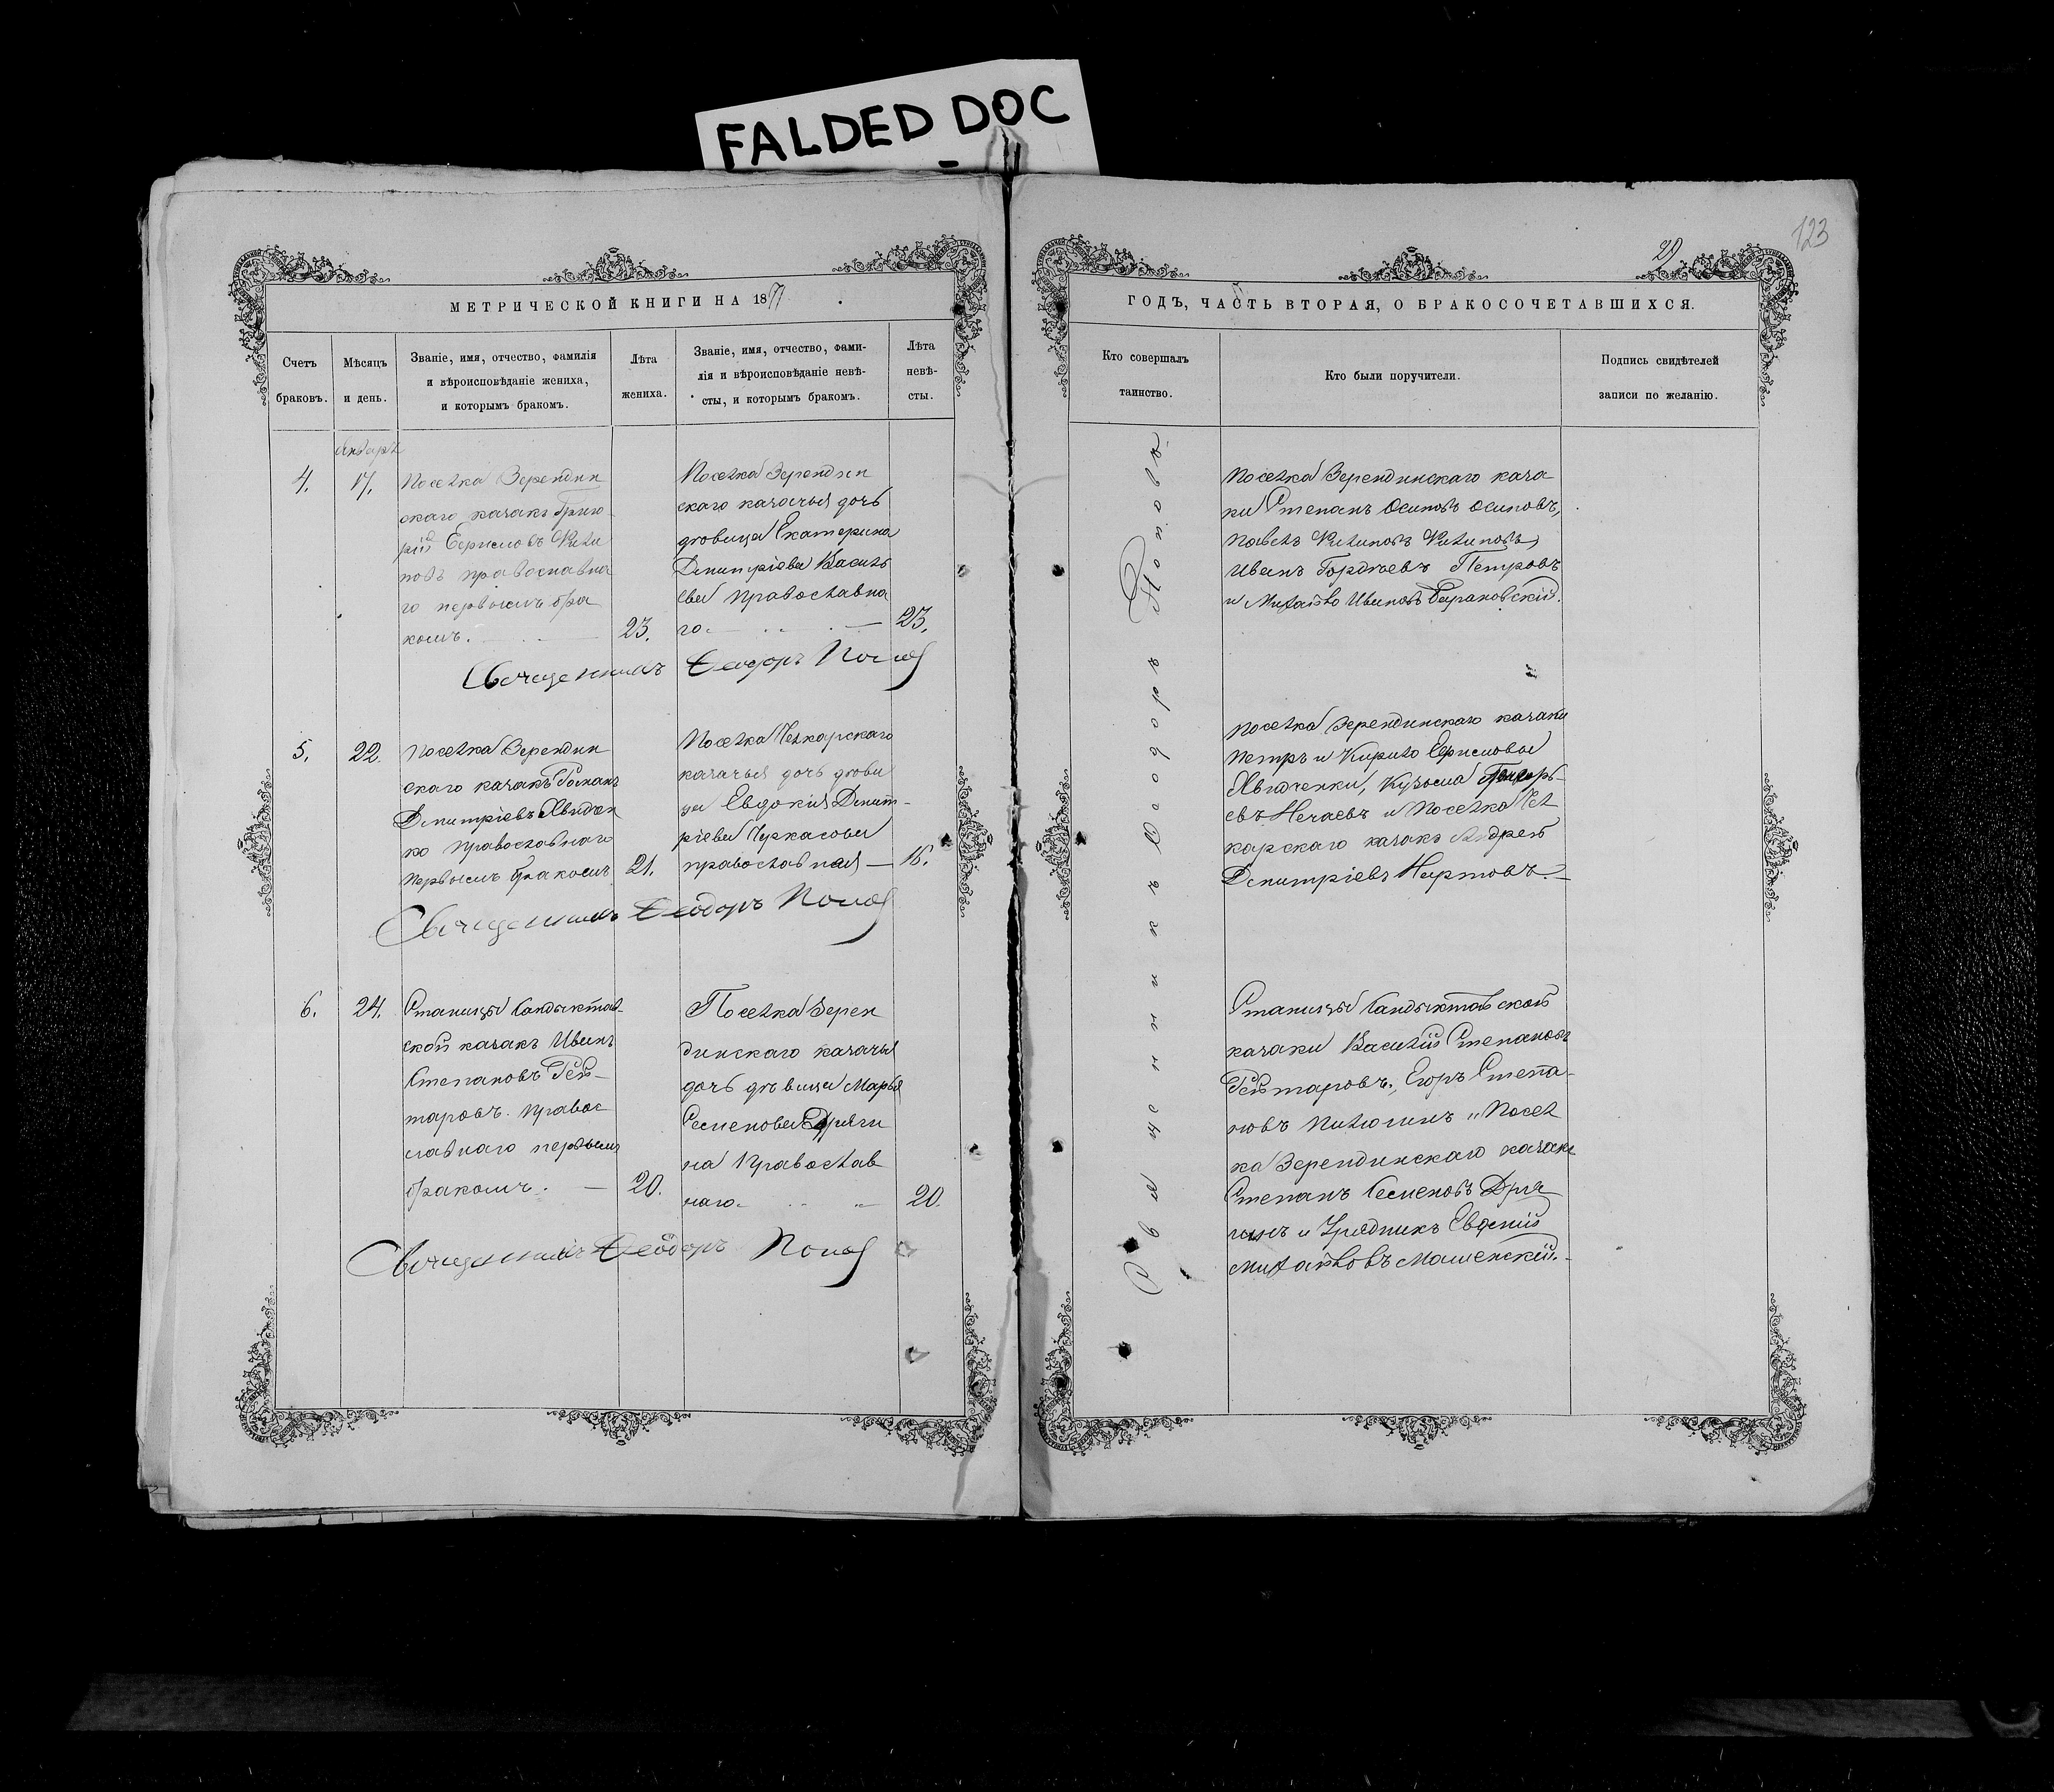 FALDED DOC
123
29
МЕТРИЧЕСКОЙ КНИГИ НА 1877
Счетъ
браковъ.
Мѣсяцъ
и день.
Званіе, имя, отчество, фамилія
и вѣроисповѣданіе жениха,
и которымъ бракомъ.
Лѣта
жениха.
Званіе, имя, отчество, фами-
лія и вѣроисповѣданіе невѣ-
сты, и которымъ бракомъ.
Лѣта
невѣ-
сты.
Январь
4.
17.
Поселка Зерендин
скаго казакъ Григо
рій Ефимовъ Фили
повъ православна
го первымъ бра
комъ.
23.
Поселка Зерендин
скаго казачья дочь
дѣвица Екатерина
Димитріева Василь
ева православна
го.
23.
Священникъ Ѳеодоръ Поповъ
5.
22.
Поселка Зерендин
скаго казакъ Романъ
Димитріевъ Явидчен
ко православнаго
первымъ бракомъ
21.
Поселка Челкарскаго
казачья дочь дѣви
ца Евдокія Димит-
ріева Чуркасова
православная
16.
Священникъ Ѳеодоръ Поповъ
6.
24.
Станицы Сандыктав-
ской казакъ Иванъ
Степановъ Рей-
таровъ правос
лавнаго первымъ
бракомъ.
20.
Поселка Зерен
динскаго казачья
дочь дѣвица Марья
Семенова Дряги
на Православ
наго.
20.
Священникъ Ѳеодоръ Поповъ
ГОДЪ, ЧАСТЬ ВТОРАЯ, О БРАКОСОЧЕТАВШИХСЯ.
Кто совершалъ
таинство.
Кто были поручители.
Подпись свидѣтелей
записи по желанію.
Священникъ Ѳеодоръ Поповъ.
Поселка Зерендинскаго каза
ки Степанъ Осиповъ Осиповъ,
Павелъ Филиповъ Филиповъ,
Иванъ Гордѣевъ Петровъ
и Михайло Ивановъ Барановскій.
Поселка Зерендинскаго казаки
Петръ и Кирило Ефимовы
Явидченки, Кузьма Григорь-
евъ Нечаевъ и Поселка Чел
карскаго казакъ Андрей
Димитріевъ Нартовъ.
Станицы Сандыктавской
казаки Василій Степановъ
Рейтаровъ, Егоръ Степа-
новъ Пилюгинъ и Посел
ка Зерендинскаго казакъ
Степанъ Семеновъ Дря
гинъ и Урядникъ Евгеній
Михайловъ Машенскій.